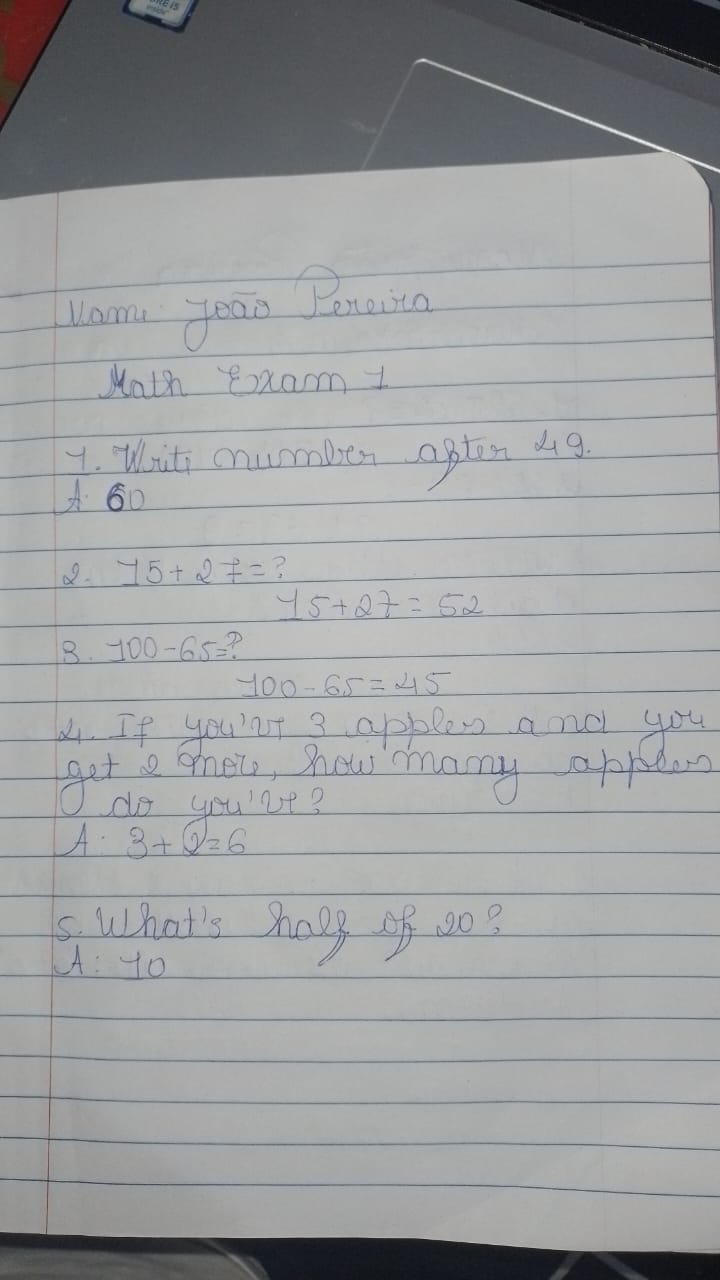 RE i5
inside
Name: João Pereira
Math Exam 1
1. Write number after 49.
A: 60
2. 15+27=?
15+27=52
3. 100-65=?
100-65=45
4. If you've 3 apples and you
get 2 more, how many apples
do you've?
A: 3+2=6
5. What's half of 20?
A: 10